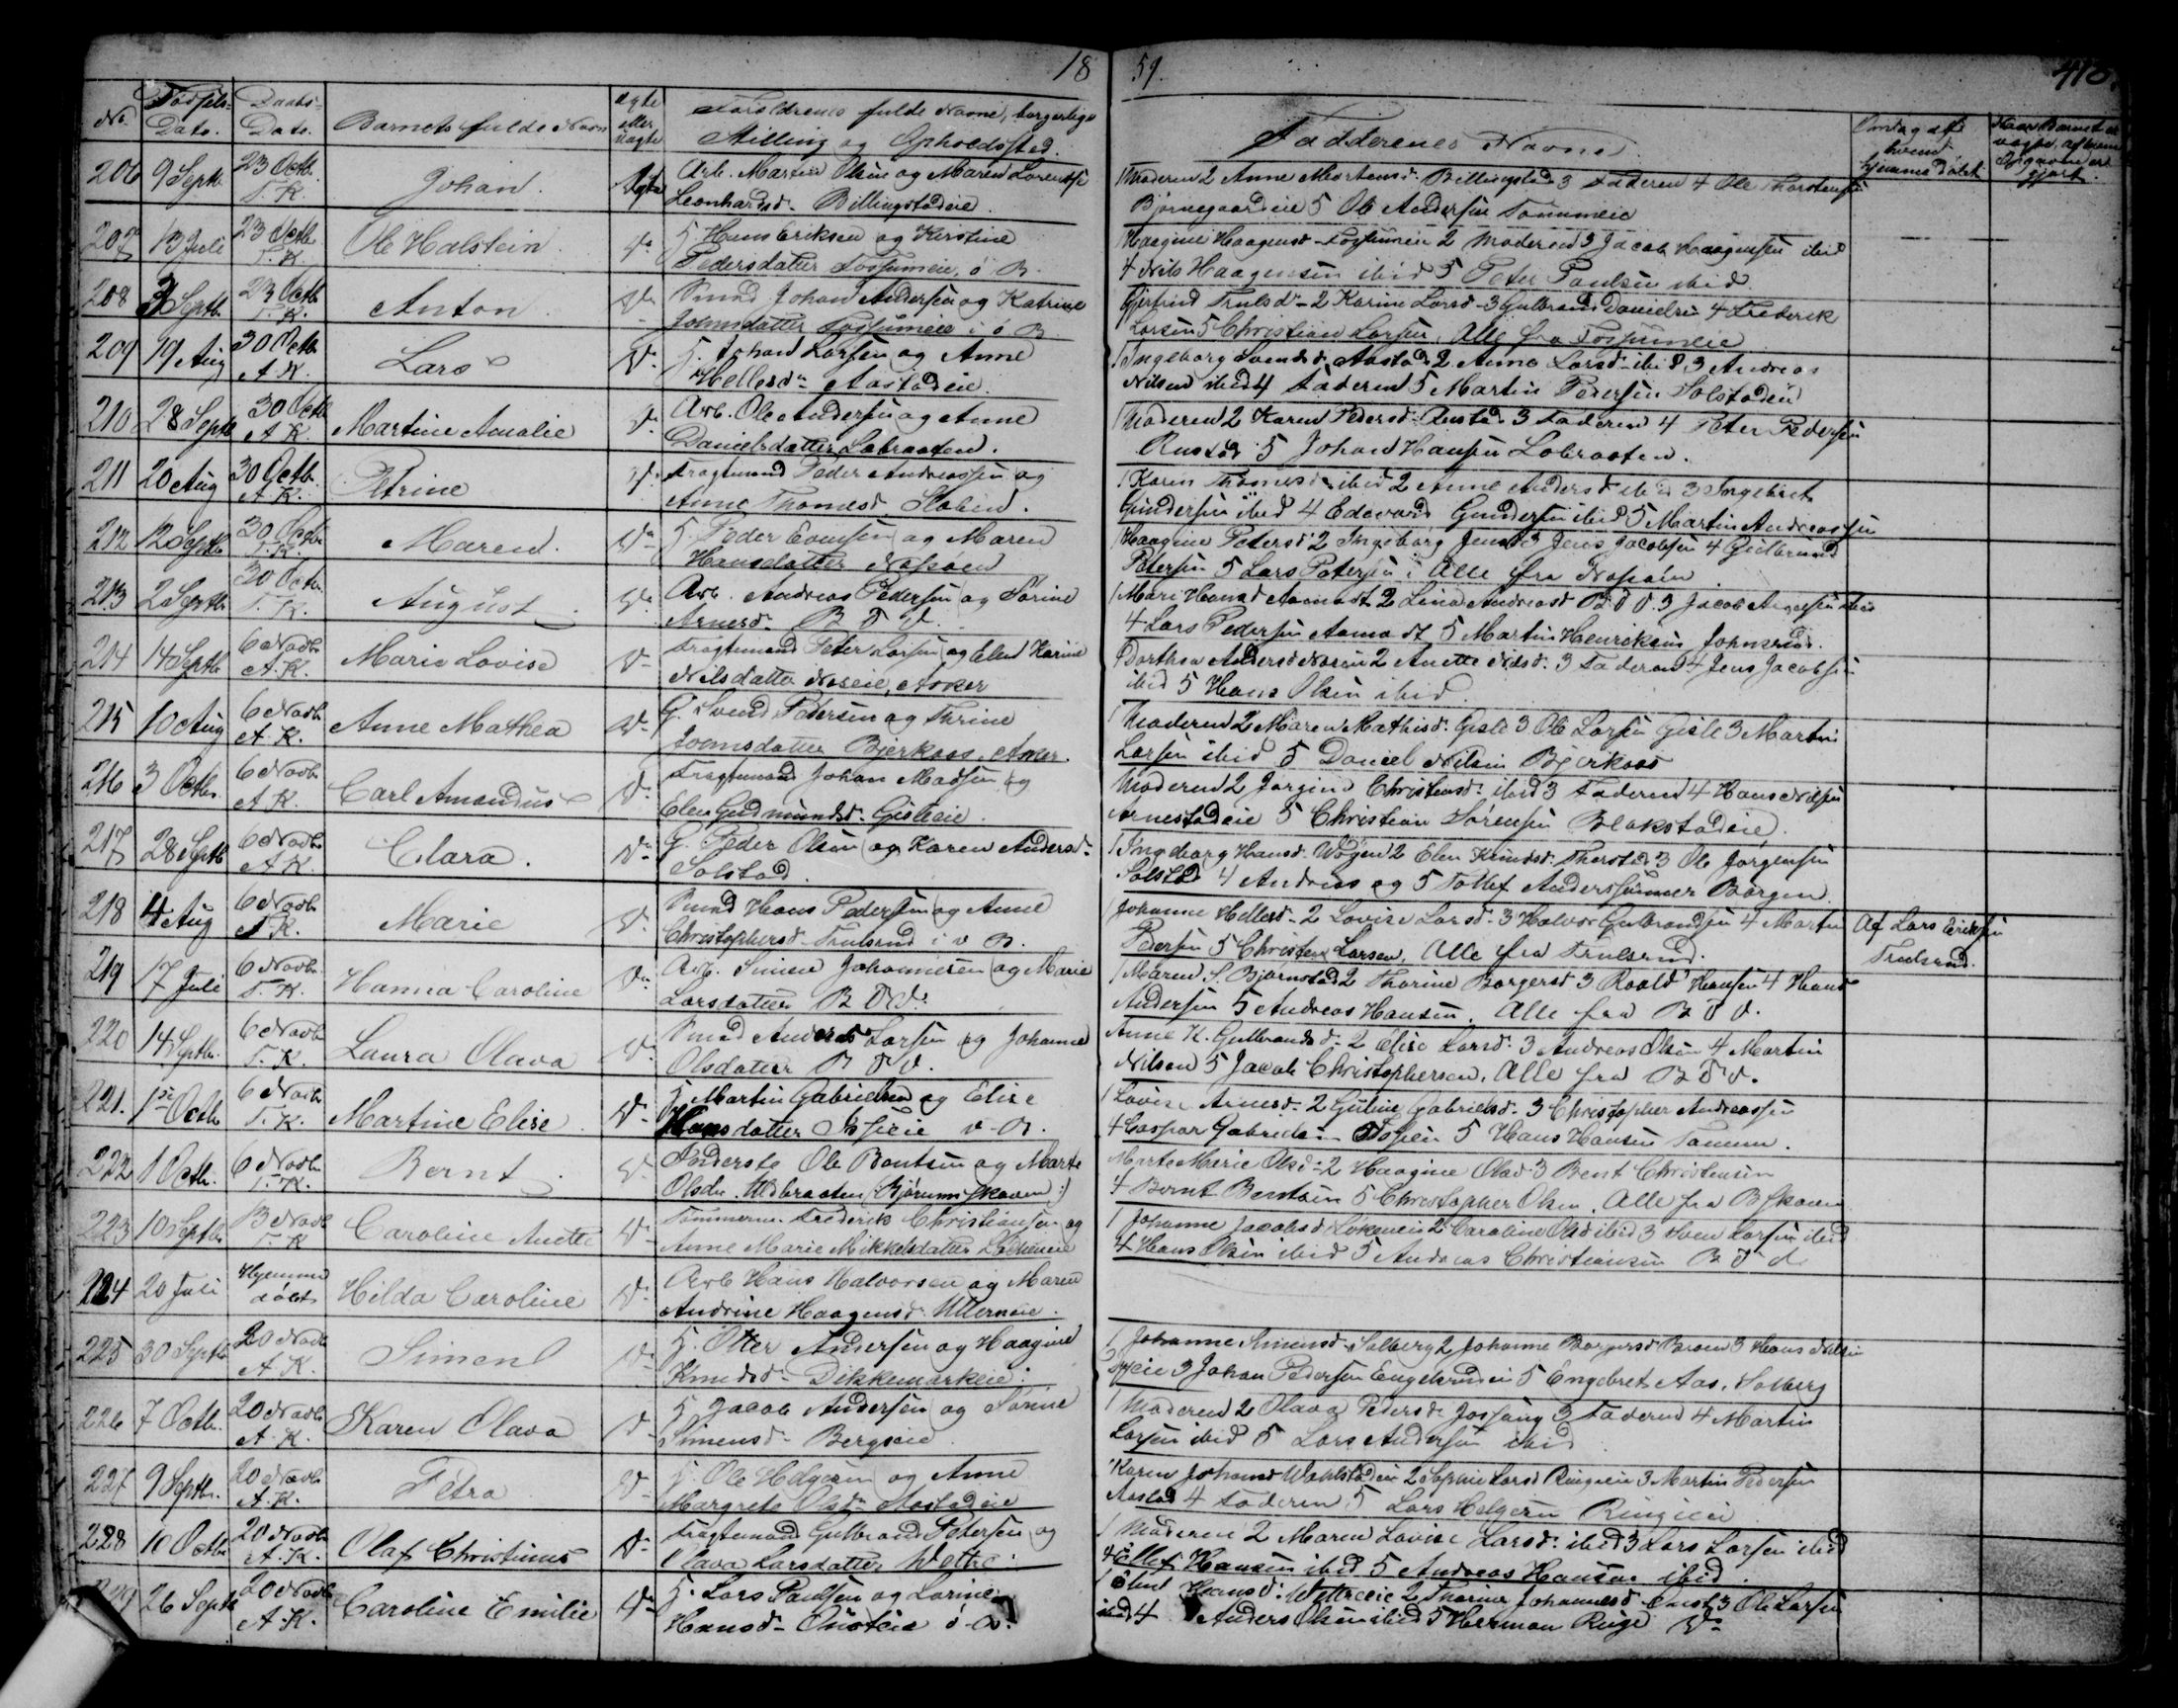 18 59. 410.
No. Fødsels- Dato. Daabs- Dato. Barnets fulde Navn ægte eller uægte Forældrenes fulde Navne, borgerlige Stilling og Opholdssted. Fadderenes Navne. Om dag eller hvem hjemmedøbt
206 9 Septb 23 Octb. T. K. Johan. Ægte Arb. Martin Olsen og Maren Lorentse
Leonhardsd. Billingstadeie.
1 Moderen 2 Anne Mortensd. Billingstad 3 Faderen 4 Ole Torstensen
Bjørnegaardeie 5 Ole Andersen Tommeie
207 13 Juli 23 Octb T. K. Ole Halstein Do H. Hans Eriksen og Kirstine
Pedersdatter Fossumeie, ø B.
1 Haagine Haagensd Fossumeie 2 Moderen 3 Jacob Haagensen ibid
4 Nils Haagensen ibid 5 Peter Paulsen ibid.
208 3 Septb. 23 Octb T. K. Anton. Do Smed Johan Andersen og Katrine
Johnsdatter Fossumeie i ø B
Trulsdr. 2 Karine Larsd. 3 Gulbrand Danielsen 4 Frederik
Larsen 5 Christian Larsen, Alle fra Fossumeie
209 19 Aug 30 Octb A. K. Lars Do H. Johan Larsen og Anne
Hellesdr. Aastadeie.
1 Ingeborg Svendsd. Aastad 2 Anne Larsd. ibid 3 Andreas
Nilsen ibid 4 Faderen 5 Martin Pedersen Solstadeie
210 28 Septb 30 Octb A. K. Martine Amalie Do Arb. Ole Andersen og Anne
Danielsdatter Løbraaten.
1 Moderen 2 Karen Pedersd. Rustad 3 Faderen 4 Peter Pedersen
Rustad 5 Johan Hansen Løbraaten.
211 20 Aug 30 Octb. A. K. Petrine Do Fragtmand Peder Andreassen og
Anne Thomesd. Holmen.
1 Karen Thomesd. ibid 2 Anne Andersd ibid 3 Ingebret
Gundersen ibid 4 Edevard Gundersen ibid 5 Martin Andreassen
212 12 Septb 30 Octb T. K. Maren. Do H. Peder Evensen og Maren
Hansdatter Nesøen
1 Haagine Petersd. 2 Ingeborg Jensd 3 Jens Jacobsen 4 Gulbrand
Petersen 5 Lars Petersen, Alle fra Nesøen
213 2 Septb 30 Octb. T. K. August Do Arb. Andreas Pedersen og Sørine
Arnesd. B
1 Mari Hansd Aamodt 2 Lina Andreasd 3 Jacob
4 Lars Pedersen Aamodt 5 Martin Henriksen, Johnsrud.
214 14 Septb 6 Novb A. K. Marie Lovise Do Fragtemand Peter Larsen og Elen Karine
Nilsdatter Neseie, Asker
1 Dorthea Andersd Nesøen 2 Anette Nilsd. 3 Faderen 4 Jens Jacobsen
ibid 5 Hans Olsen ibid.
215 10 Aug 6 Novb A. K. Anne Mathea Do G. Svend Pedersen og Thrine
Joensdatter Bjerkaas, Asker.
1 Moderen 2 Maren Mathisd. Gisle 3 Ole Larsen Gisle 3 Martin
Larsen ibid 5 Daniel Nilsen Bjerkaas
216 3 Octb. 6 Novb A. K. Carl Amandus Do Fragtemand Johan Madsen og
Elen Gudmundsd. Gisleeie.
Moderen 2 Jørgine Christensd. ibid 3 Faderen 4 Hans Nilsen
Arnestadeie 5 Christian Sørensen Blakstadeie.
217 28 Septb 6 Novb A. K. Clara. Do G. Peder Olsen og Karen Andersd.
Solstad.
1 Ingeborg Hansd. Wøyen 2 Elen Knudsd. 3 Ole Jørgensen
Solstad 4 Andreas og 5 Tollef Anderssønner Borgen
218 4 Aug 6 Novb A. K. Marie Do Smed Hans Pedersen og Anne
Christophersd. Trulsrud i v B.
1 Johanne Hellesd. 2 Lovise Larsd. 3 Halvor Gulbrandsen 4 Morten Af Lars Eriksen
Pedersen 5 Christen Larsen, Alle fra Trulsrud. Trulsrud.
219 17 Juli 6 Novb. T. K. Hanna Caroline Do Arb. Simen Johannesen og Marie
Larsdatter B
1 Maren S. Bjørnstad 2 Thorine Børgersd 3 Roald Hansen 4 Hans
Andersen 5 Andreas Hansen. Alle fra B
220 14 Septb. 6 Novb T. K. Laura Olava Do Smed Anders Larsen og Johanne
Olsdatter B
Anne K. Gulbrandsd. 2 Elise Larsd. 3 Andreas Olsen 4 Martin
Nilsen 5 Jacob Christophersen, Alle fra B
221. 1ste Octb 6 Novb T. K. Martine Elise Do H. Martin Gabrielsen og Elise
Hansdatter v. B.
1 Lovise Arnesd. 2 Guline Gabrielsd. 3 Christopher Andreassen
4 Caspar Gabrielsen 5 Hans Hansen Tommen.
222 1 Octb. 6 Novb T. K. Bernt Do Inderste Ole Bentsen og Marte
Olsdr. Ulvbraaten (Bjørumskoven)
Marte Marie Olsd. 2 Haagine Olsd 3 Bent Christensen
4 Bernt Bentsen 5 Christopher Olsen, Alle fra B skoven
223 10 Septb. 13 Novb T. K. Caroline Anette Do Tømmerm. Frederik Christiansen og
Anne Marie Mikkelsdatter Løkeneie
1 Johanne Jacobsd Løkeneie 2 Caroline Olsd ibid 3 Sven Larsen ibid
4 Hans Olsen ibid 5 Andreas Christiansen B
224 20 Juli Hjemme døbt Hilda Caroline Do Arb Hans Halvorsen og Maren
Andrine Haagensd. Ullerneie.
225 30 Septb 20 Novb A. K. Simen Do H. Otter Andersen og Haagine
Knudsd. Dikkemarkeie.
1 Johanne Simensd. Solberg 2 Johanne Børgersd Broen 3 Hans Nilsen
3 Johan Pedersen Engelsrudeie 5 Engebret Aas, Solberg
226 7 Octb. 20 Novb A. K. Karen Olava Do H Jacob Andersen og Sørine
Simensd. Bergseie
1 Moderen 2 Olava Pedersd. Jossang 3 Faderen 4 Martin
Larsen ibid 5 Lars Andersen ibid
227 9 Septb. 20 Novb A. K. Petra Do H. Ole Helgesen og Anne
Margrete Olsdr. Aastadeie
1 Karen Johansd 2 Sophie Larsd Ringieie 3 Martin Pedersen
Aastad 4 Faderen 5 Lars Helgesen Ringieie
228 10 Octb 20 Novb A. K. Olaf Christinus Do Fragtemand Gulbrand Petersen og
Olava Larsdatter Wettre.
1 Moderen 2 Maren Lovise Larsd. ibid 3 Lars Larsen ibid
4 Ellef Hansen ibid 5 Andreas Hansen ibid.
229 26 Septb 20 Novb A. K. Caroline Emilie Do H. Lars Paulsen og Lorine
Hansd.
1 Hansd. Wettreeie 2 Thorine Johannesd 3 Ole Larsen
ibid 4 Anders Olsen ibid 5 Herman Ruge Do